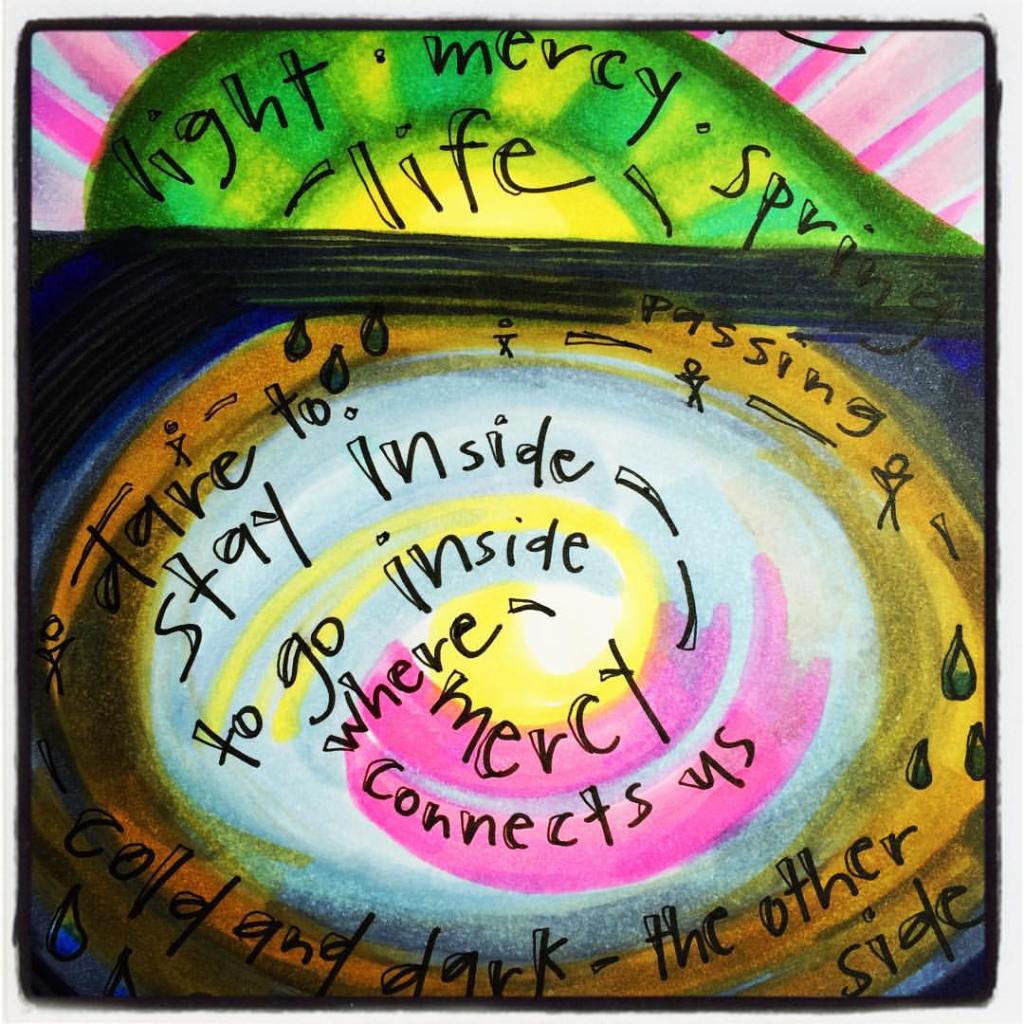 light · mercy · spring
- life -
passing
dare to:
stay inside -
to go inside
where -
mercy
connects us
cold and dark - the other
side